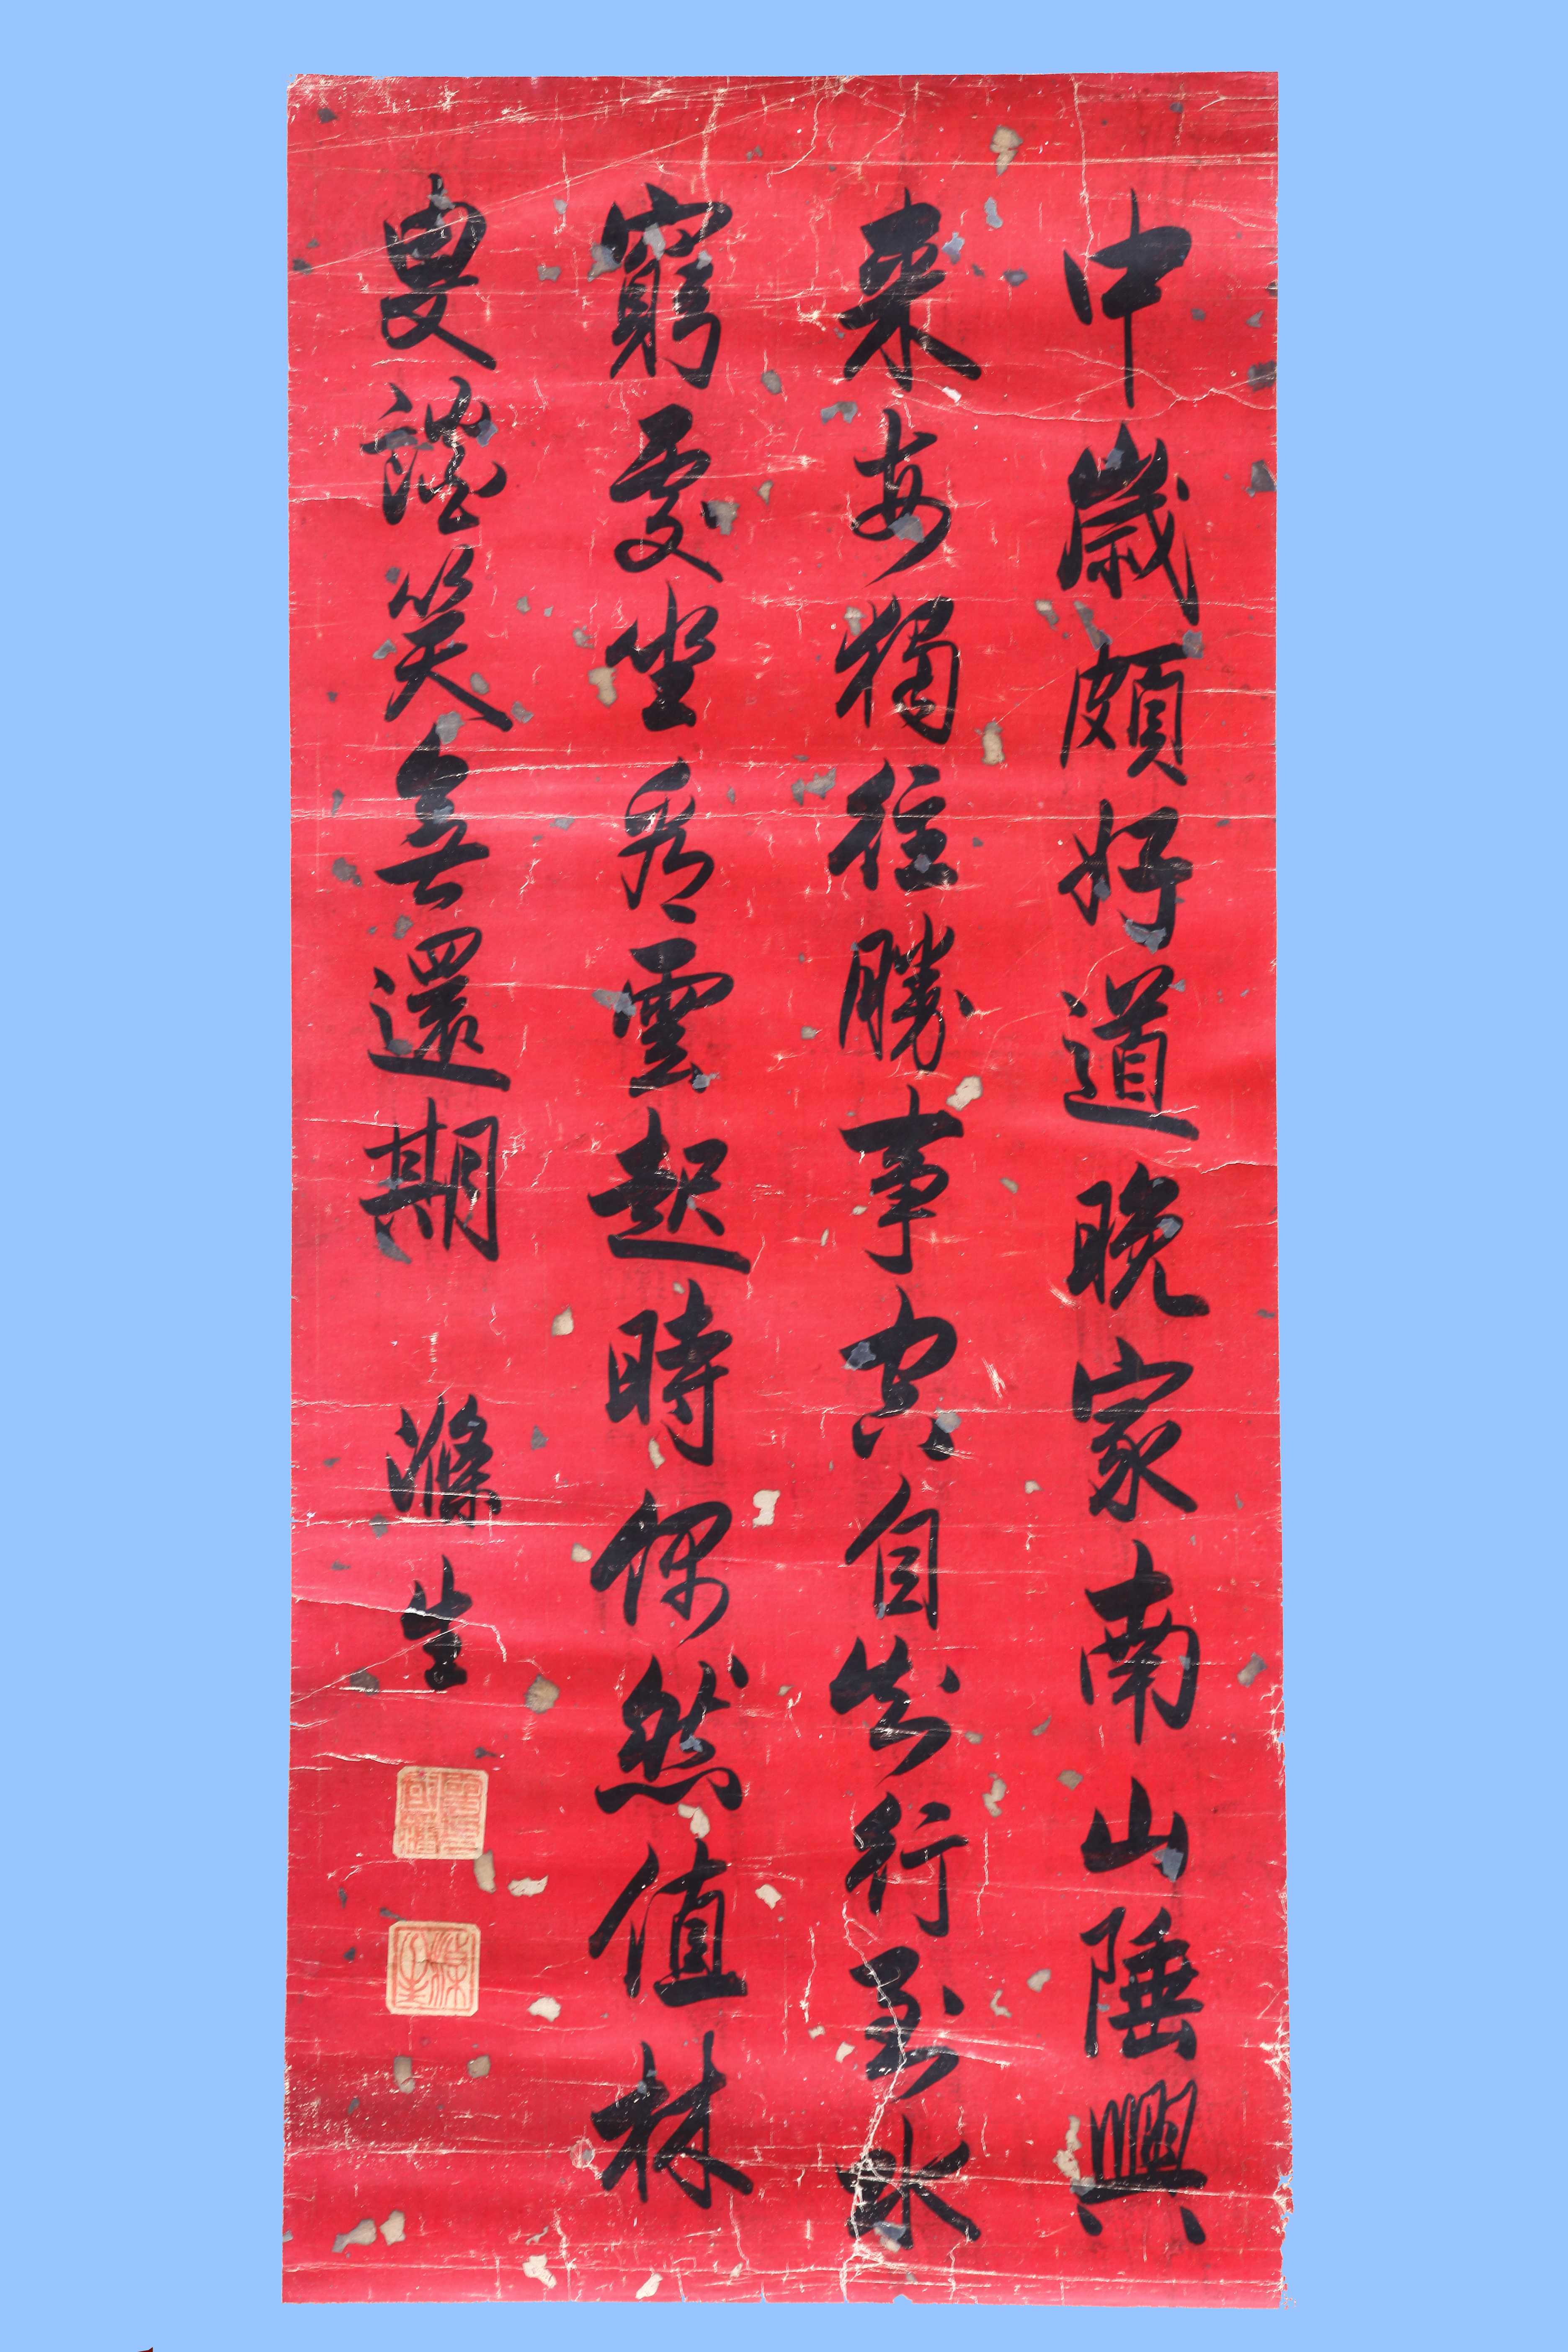 中歲頗好道晚家南山陲興
來每獨往勝事空自知行到水
窮處坐看雲起時偶然值林
叟談笑無還期 滌生
滌生